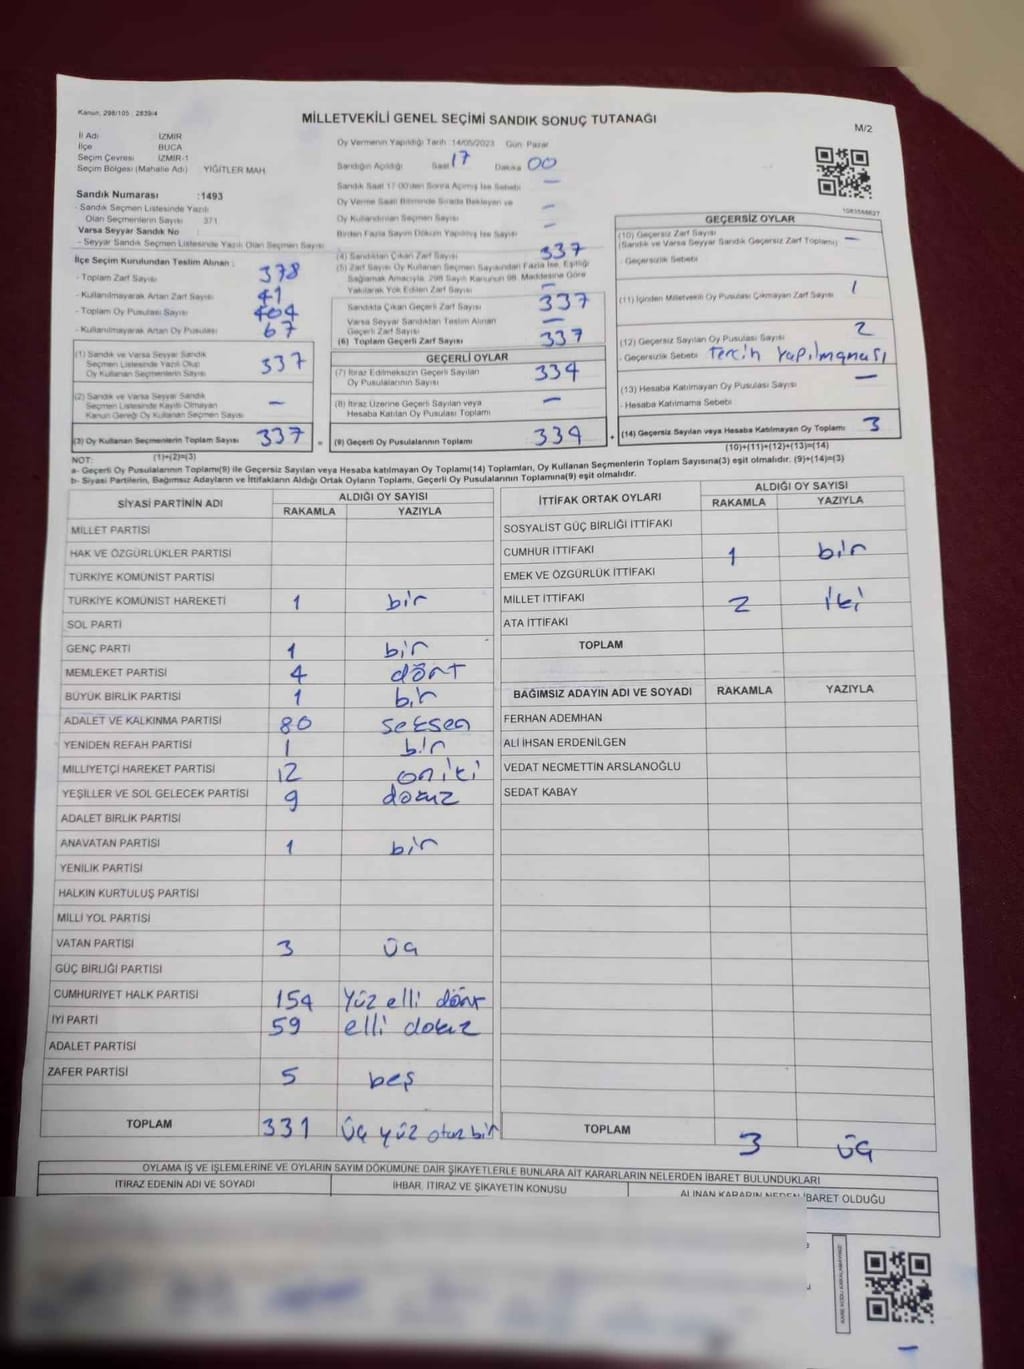 Kanun; 298/105 ; 2839/4
MİLLETVEKİLİ GENEL SEÇİMİ SANDIK SONUÇ TUTANAĞI
M/2
İl Adı İZMİR
İlçe BUCA
Seçim Çevresi İZMİR-1
Seçim Bölgesi (Mahalle Adı) YİĞİTLER MAH.
Sandık Numarası :1493
- Sandık Seçmen Listesinde Yazılı
Olan Seçmenlerin Sayısı 371
Varsa Seyyar Sandık No :
- Seyyar Sandık Seçmen Listesinde Yazılı Olan Seçmen Sayısı
Oy Vermenin Yapıldığı Tarih :14/05/2023 Gün Pazar
Sandığın Açıldığı Saat 17 Dakika 00
Sandık Saat 17.00'den Sonra Açılmış İse Sebebi —
Oy Verme Saati Bitiminde Sırada Bekleyen ve
Oy Kullandırılan Seçmen Sayısı —
Birden Fazla Sayım Döküm Yapılmış İse Sayısı —
1083566627
İlçe Seçim Kurulundan Teslim Alınan :
- Toplam Zarf Sayısı 378
- Kullanılmayarak Artan Zarf Sayısı 41
- Toplam Oy Pusulası Sayısı 404
- Kullanılmayarak Artan Oy Pusulası 67
(1) Sandık ve Varsa Seyyar Sandık
Seçmen Listesinde Yazılı Olup
Oy Kullanan Seçmenlerin Sayısı 337
(2) Sandık ve Varsa Seyyar Sandık
Seçmen Listesinde Kayıtlı Olmayan
Kanun Gereği Oy Kullanan Seçmen Sayısı —
(3) Oy Kullanan Seçmenlerin Toplam Sayısı 337
(1)+(2)=(3)
(4) Sandıktan Çıkan Zarf Sayısı 337
(5) Zarf Sayısı Oy Kullanan Seçmen Sayısından Fazla İse, Eşitliği
Sağlamak Amacıyla, 298 Sayılı Kanunun 98. Maddesine Göre
Yakılarak Yok Edilen Zarf Sayısı —
Sandıkta Çıkan Geçerli Zarf Sayısı 337
Varsa Seyyar Sandıktan Teslim Alınan
Geçerli Zarf Sayısı —
(6) Toplam Geçerli Zarf Sayısı 337
GEÇERLİ OYLAR
(7) İtiraz Edilmeksizin Geçerli Sayılan
Oy Pusulalarının Sayısı 334
(8) İtiraz Üzerine Geçerli Sayılan veya
Hesaba Katılan Oy Pusulası Toplamı —
(9) Geçerli Oy Pusulalarının Toplamı 334
GEÇERSİZ OYLAR
(10) Geçersiz Zarf Sayısı —
(Sandık ve Varsa Seyyar Sandık Geçersiz Zarf Toplamı)
- Geçersizlik Sebebi
(11) İçinden Milletvekili Oy Pusulası Çıkmayan Zarf Sayısı 1
(12) Geçersiz Sayılan Oy Pusulası Sayısı 2
- Geçersizlik Sebebi Tercih yapılmaması
(13) Hesaba Katılmayan Oy Pusulası Sayısı —
- Hesaba Katılmama Sebebi
(14) Geçersiz Sayılan veya Hesaba Katılmayan Oy Toplamı 3
(10)+(11)+(12)+(13)=(14)
NOT:
a- Geçerli Oy Pusulalarının Toplamı(9) ile Geçersiz Sayılan veya Hesaba katılmayan Oy Toplamı(14) Toplamları, Oy Kullanan Seçmenlerin Toplam Sayısına(3) eşit olmalıdır. (9)+(14)=(3)
b- Siyasi Partilerin, Bağımsız Adayların ve İttifakların Aldığı Ortak Oyların Toplamı, Geçerli Oy Pusulalarının Toplamına(9) eşit olmalıdır.
SİYASİ PARTİNİN ADI ALDIĞI OY SAYISI
RAKAMLA YAZIYLA
MİLLET PARTİSİ
HAK VE ÖZGÜRLÜKLER PARTİSİ
TÜRKİYE KOMÜNİST PARTİSİ
TÜRKİYE KOMÜNİST HAREKETİ 1 bir
SOL PARTİ
GENÇ PARTİ 1 bir
MEMLEKET PARTİSİ 4 dört
BÜYÜK BİRLİK PARTİSİ 1 bir
ADALET VE KALKINMA PARTİSİ 80 seksen
YENİDEN REFAH PARTİSİ 1 bir
MİLLİYETÇİ HAREKET PARTİSİ 12 on iki
YEŞİLLER VE SOL GELECEK PARTİSİ 9 dokuz
ADALET BİRLİK PARTİSİ
ANAVATAN PARTİSİ 1 bir
YENİLİK PARTİSİ
HALKIN KURTULUŞ PARTİSİ
MİLLİ YOL PARTİSİ
VATAN PARTİSİ 3 üç
GÜÇ BİRLİĞİ PARTİSİ
CUMHURİYET HALK PARTİSİ 154 Yüz elli dört
İYİ PARTİ 59 elli dokuz
ADALET PARTİSİ
ZAFER PARTİSİ 5 beş
TOPLAM 331 üç yüz otuz bir
İTTİFAK ORTAK OYLARI ALDIĞI OY SAYISI
RAKAMLA YAZIYLA
SOSYALİST GÜÇ BİRLİĞİ İTTİFAKI
CUMHUR İTTİFAKI 1 bir
EMEK VE ÖZGÜRLÜK İTTİFAKI
MİLLET İTTİFAKI 2 iki
ATA İTTİFAKI
TOPLAM
BAĞIMSIZ ADAYIN ADI VE SOYADI RAKAMLA YAZIYLA
FERHAN ADEMHAN
ALİ İHSAN ERDENİLGEN
VEDAT NECMETTİN ARSLANOĞLU
SEDAT KABAY
TOPLAM 3 üç
OYLAMA İŞ VE İŞLEMLERİNE VE OYLARIN SAYIM DÖKÜMÜNE DAİR ŞİKAYETLERLE BUNLARA AİT KARARLARIN NELERDEN İBARET BULUNDUKLARI
İTİRAZ EDENİN ADI VE SOYADI İHBAR, İTİRAZ VE ŞİKAYETİN KONUSU ALINAN KARARIN NEDEN İBARET OLDUĞU